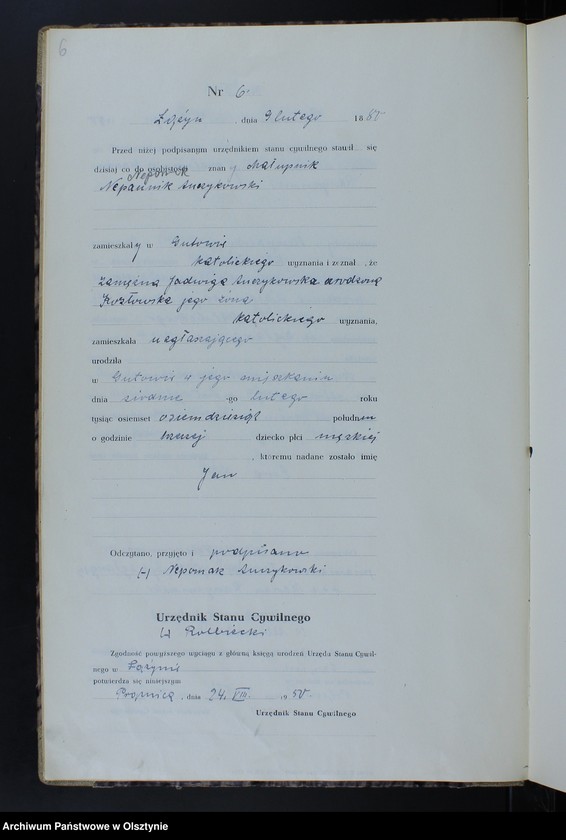 6
Nr 6
dnia 9 lutego 1880
Przed niżej podpisanym urzędnikiem stanu cywilnego stawił się
dzisiaj co do osobistości znany
zamieszkały w Gutowie
katolickiego wyznania i zeznał, że
zamężna Jadwiga urodzona
Kozłowska jego żona
katolickiego wyznania,
zamieszkała u zgłaszającego
urodziła
w Gutowie w jego mieszkaniu
dnia -go lutego roku
tysiąc osiemset osiemdziesiąt południu
o godzinie dziecko płci męskiej
, któremu nadane zostało imię
Jan
Odczytano, przyjęto i podpisano
(-) Nepomuk
Urzędnik Stanu Cywilnego
(-) Rolbiecki
Zgodność powyższego wyciągu z główną księgą urodzeń Urzędu Stanu Cywil-
nego w
potwierdza się niniejszym
dnia 24. VIII. 1950
Urzędnik Stanu Cywilnego
Archiwum Państwowe w Olsztynie